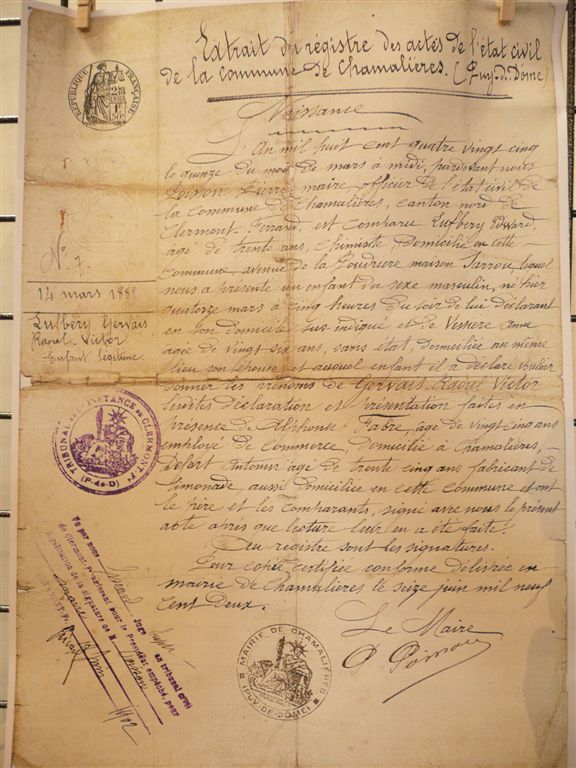 Extrait du régistre des actes de l'état civil
de la commune de Chamalières. (Puy-d-Dôme)
RÉPUBLIQUE FRANÇAISE
Naissance
L'An mil huit cent quatre vingt cinq
le quinze du mois de mars à midi, pardevant nous
Poisson Pierre maire officier de l'état civil de
la commune de Chamalières, canton nord de
Clermont-Ferrand, est comparu Lufbéry Edward,
âgé de trente ans, chimiste domicilié en cette
commune, avenue de la Poudrière maison Sarrou, lequel
nous a présenté un enfant de sexe masculin, né hier
quatorze mars à cinq heures du soir de lui déclarant
en son domicile sus indiqué et de Vessère Anne
agée de vingt six ans, sans état, domiciliée au même
lieu son épouse et auquel enfant il a déclaré vouloir
donner les prénoms de Gervais Raoul Victor
lesdites déclaration et présentation faites en
présence de Alphonse Fabre, âgé de vingt cinq ans
employé de commerce, domicilié à Chamalières,
âgé de trente cinq ans fabricant de
limonade, aussi domicilié en cette commune et ont
le père et les comparants, signé avec nous le présent
acte après que lecture leur en a été faite.
Au registre sont les signatures.
Pour copie certifiée conforme délivrée en
mairie de Chamalières le seize juin mil neuf
cent deux.
Le Maire
P Poisson
N° 7
14 mars 188
Lufbéry Gervais
Raoul-Victor
Enfant légitime.
TRIBUNAL INSTANCE CLERMONT-Fd
(P.-de-D.)
Vu par nous Juge au tribunal civil
de Clermont-Fd pour le Président empêché, pour
légalisation de la signature de M. Poisson
maire
1902
MAIRIE DE CHAMALIÈRES
(PUY-DE-DÔME)